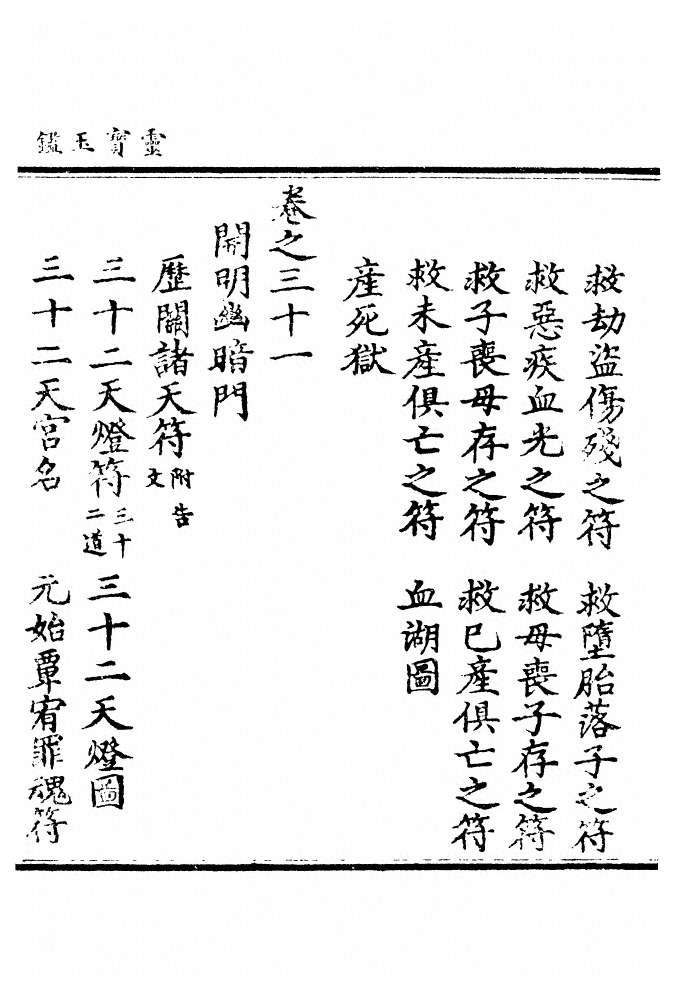 靈寶玉鑑
救劫盜傷殘之符　救墮胎落子之符
救惡疾血光之符　救母喪子存之符
救子喪母存之符　救已產俱亡之符
救未產俱亡之符　血湖圖
產死獄
卷之三十一
開明幽暗門
歷關諸天符附告文
三十二天燈符三十二道　三十二天燈圖
三十二天宮名　元始覃宥罪魂符